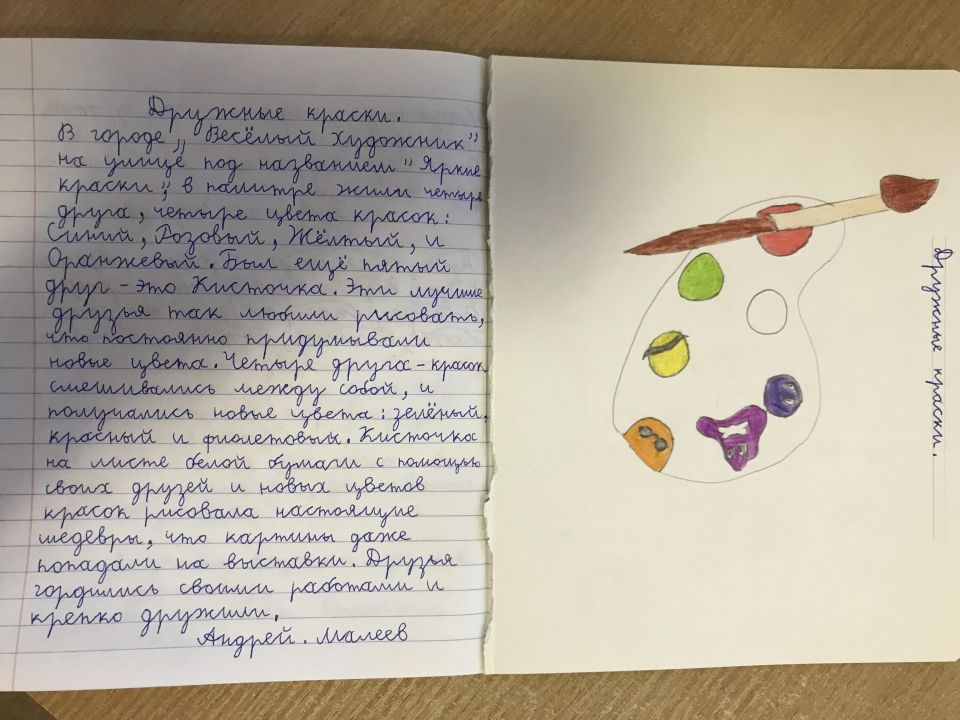 Дружные краски.
В городе „Весёлый Художник”
на улице под названием "Яркие
краски", в палитре жили четыре
друга, четыре цвета красок:
Синий, Розовый, Жёлтый, и
Оранжевый. Был ещё пятый
друг - это Кисточка. Эти лучшие
друзья так любили рисовать,
что постоянно придумывали
новые цвета. Четыре друга - краски
смешивались между собой, и
получались новые цвета: зелёный,
красный и фиолетовый. Кисточка
на листе белой бумаги с помощью
своих друзей и новых цветов
красок рисовала настоящие
шедевры, что картины даже
попадали на выставки. Друзья
гордились своими работами и
крепко дружили.
Андрей. Малеев
Дружные краски.